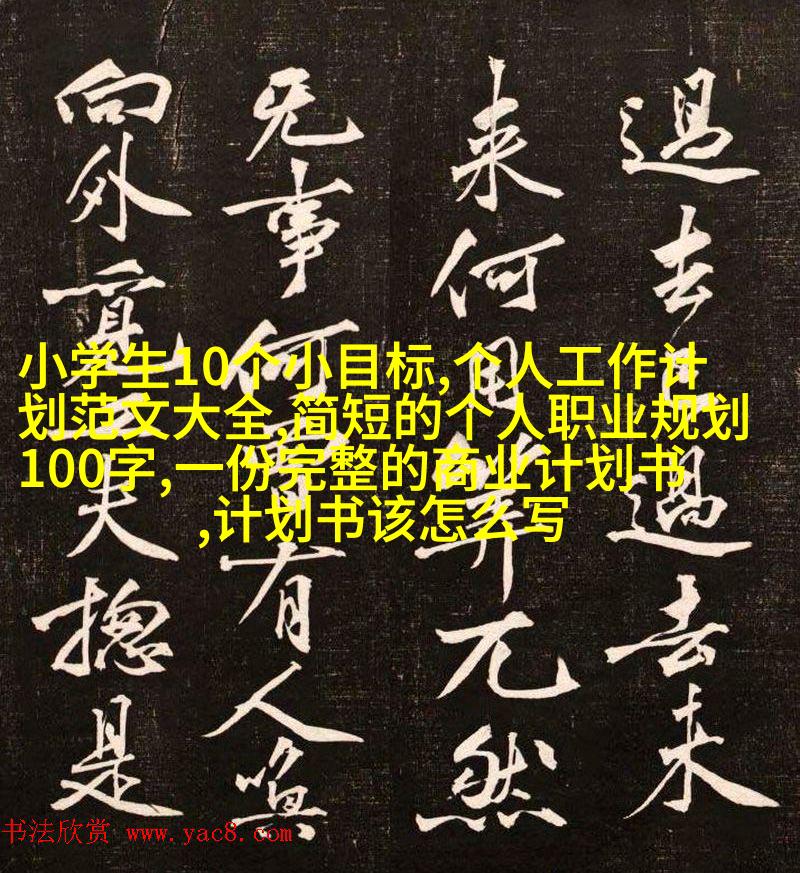 過去已過去未
来何用算兀然
无事何曾有人喚
向外覓工夫捴是
小学生10个小目标,个人工作计
划范文大全,简短的个人职业规划
100字,一份完整的商业计划书
,计划书该怎么写
书法欣赏 www.yac8.com